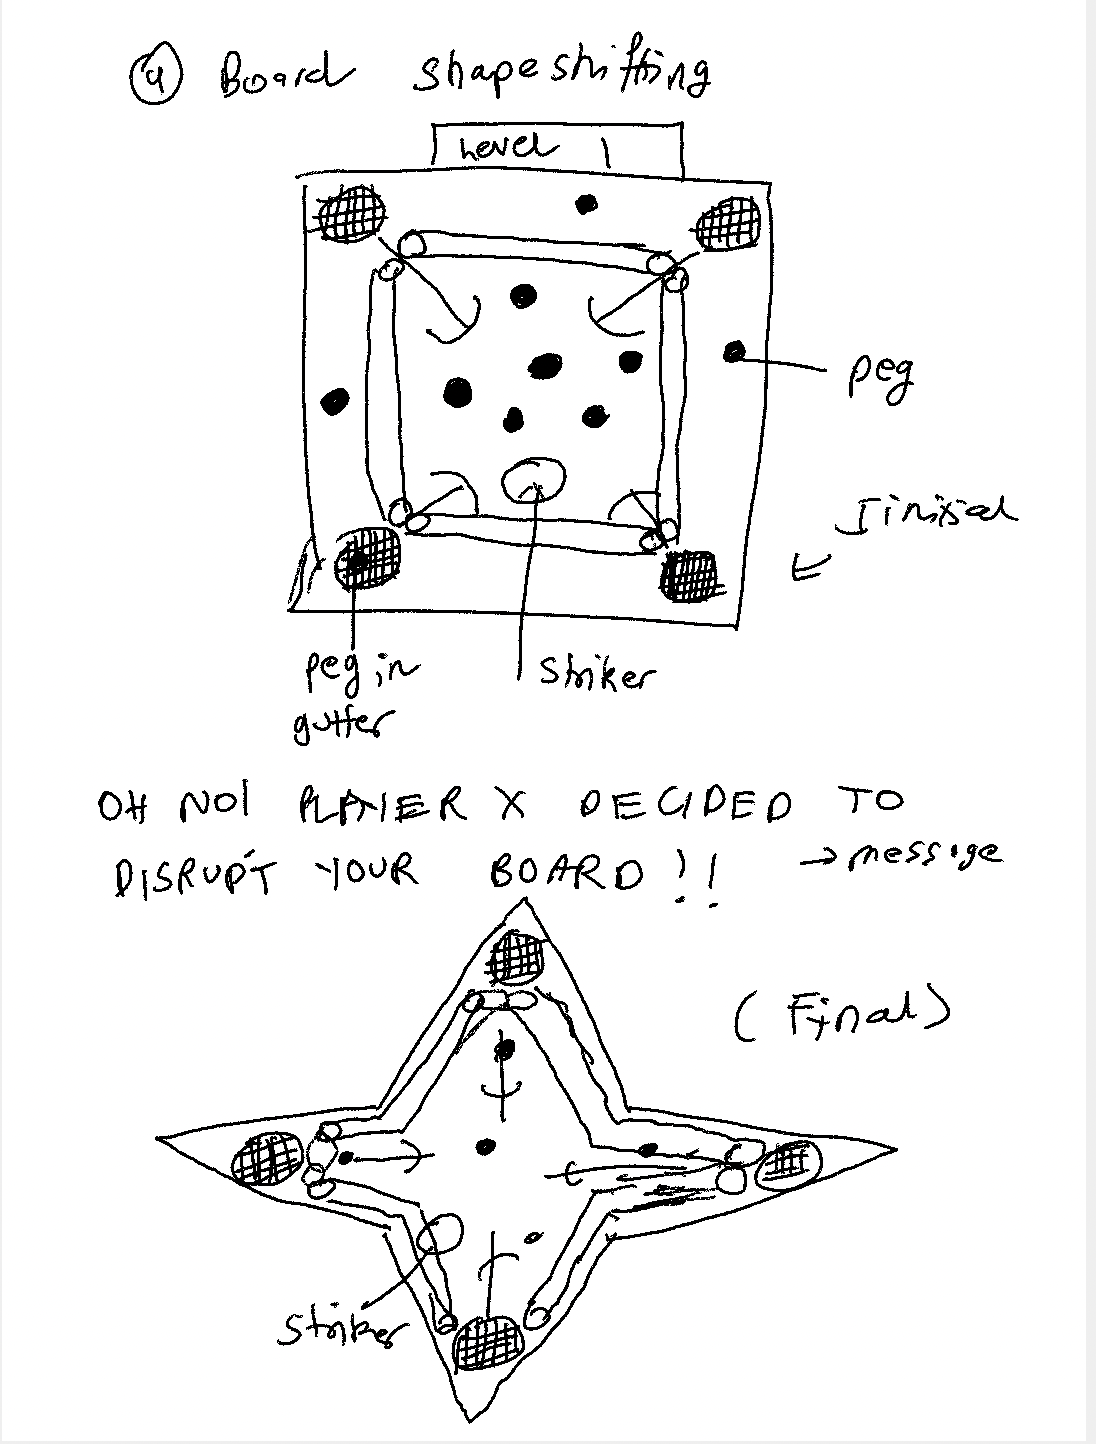 ④ Board shapeshifting
Level 1
peg
Initial
peg in
gutter
striker
OH NO! PLAYER X DECIDED TO
DISRUPT YOUR BOARD!!
→ message
(Final)
striker